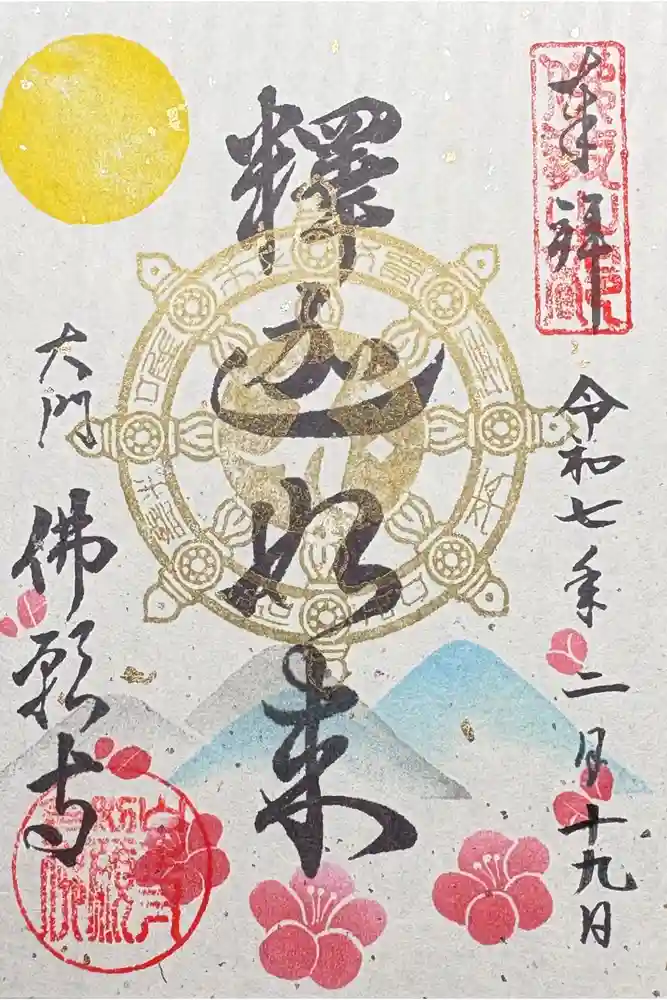 奉拝
令和七年二月十九日
釋迦如来
大門
佛願寺